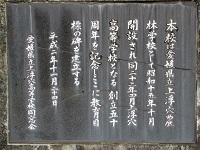 本校は愛媛県立上浮穴農
林学校として昭和十五年十月
開設され同二十三年四月上浮穴
高等学校となる 創立五十
周年を記念しここに教育目
標の碑を建立する
平成二年十一月二十三日
愛媛県立上浮穴高等学校同窓会